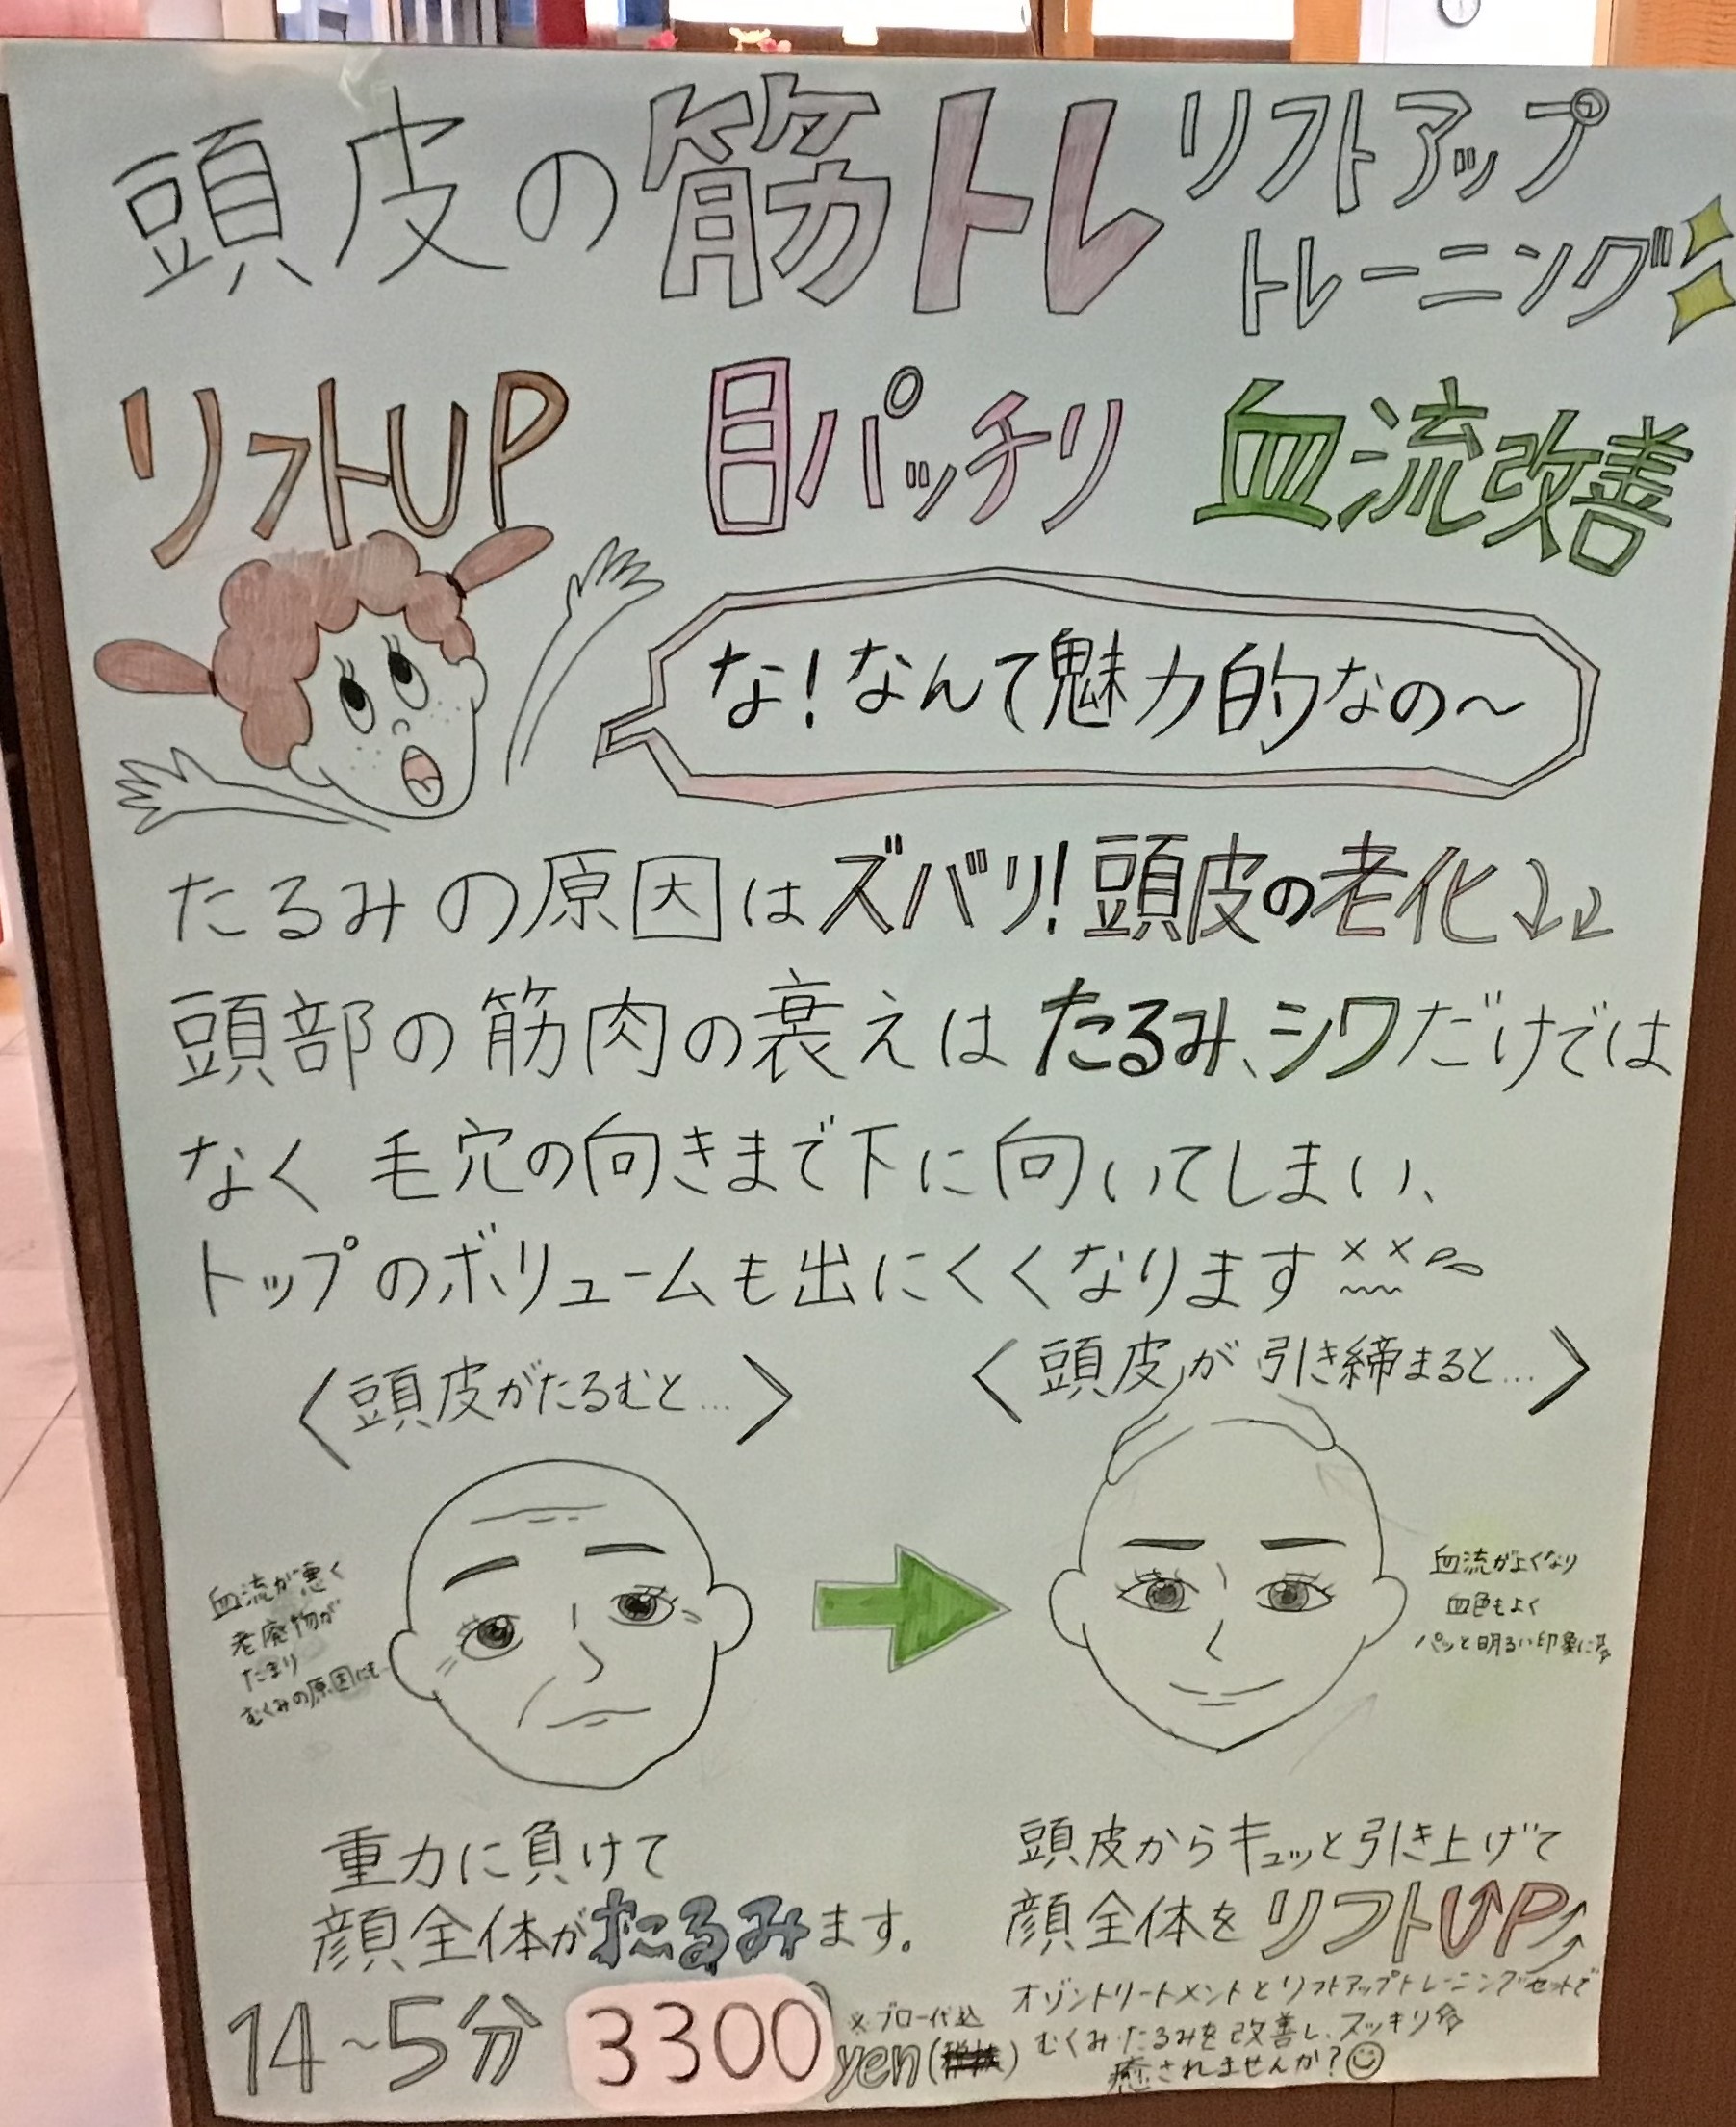 頭皮の筋トレ リフトアップ
トレーニング
リフトUP 目パッチリ 血流改善
な!なんて魅力的なの〜
たるみの原因はズバリ!頭皮の老化
頭部の筋肉の衰えはたるみ、シワだけでは
なく 毛穴の向きまで下に向いてしまい、
トップのボリュームも出にくくなります
〈頭皮がたるむと…〉
血流が悪く
老廃物が
たまり
むくみの原因にも…
重力に負けて
顔全体がたるみます。
〈頭皮が引き締まると…〉
血流がよくなり
血色もよく
パッと明るい印象に
頭皮からキュッと引き上げて
顔全体をリフトUP
14〜5分 3300yen
※ブロー代込
オゾントリートメントとリフトアップトレーニングセットで
むくみ・たるみを改善し、スッキリ
癒されませんか?